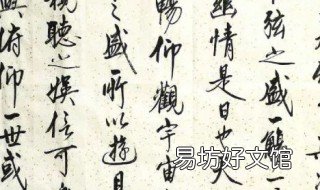 弦之盛一觴
幽情是日也天
暢仰觀宇宙
之盛所以遊目
視聽之娛信可
與俯仰一世或
易坊好文馆